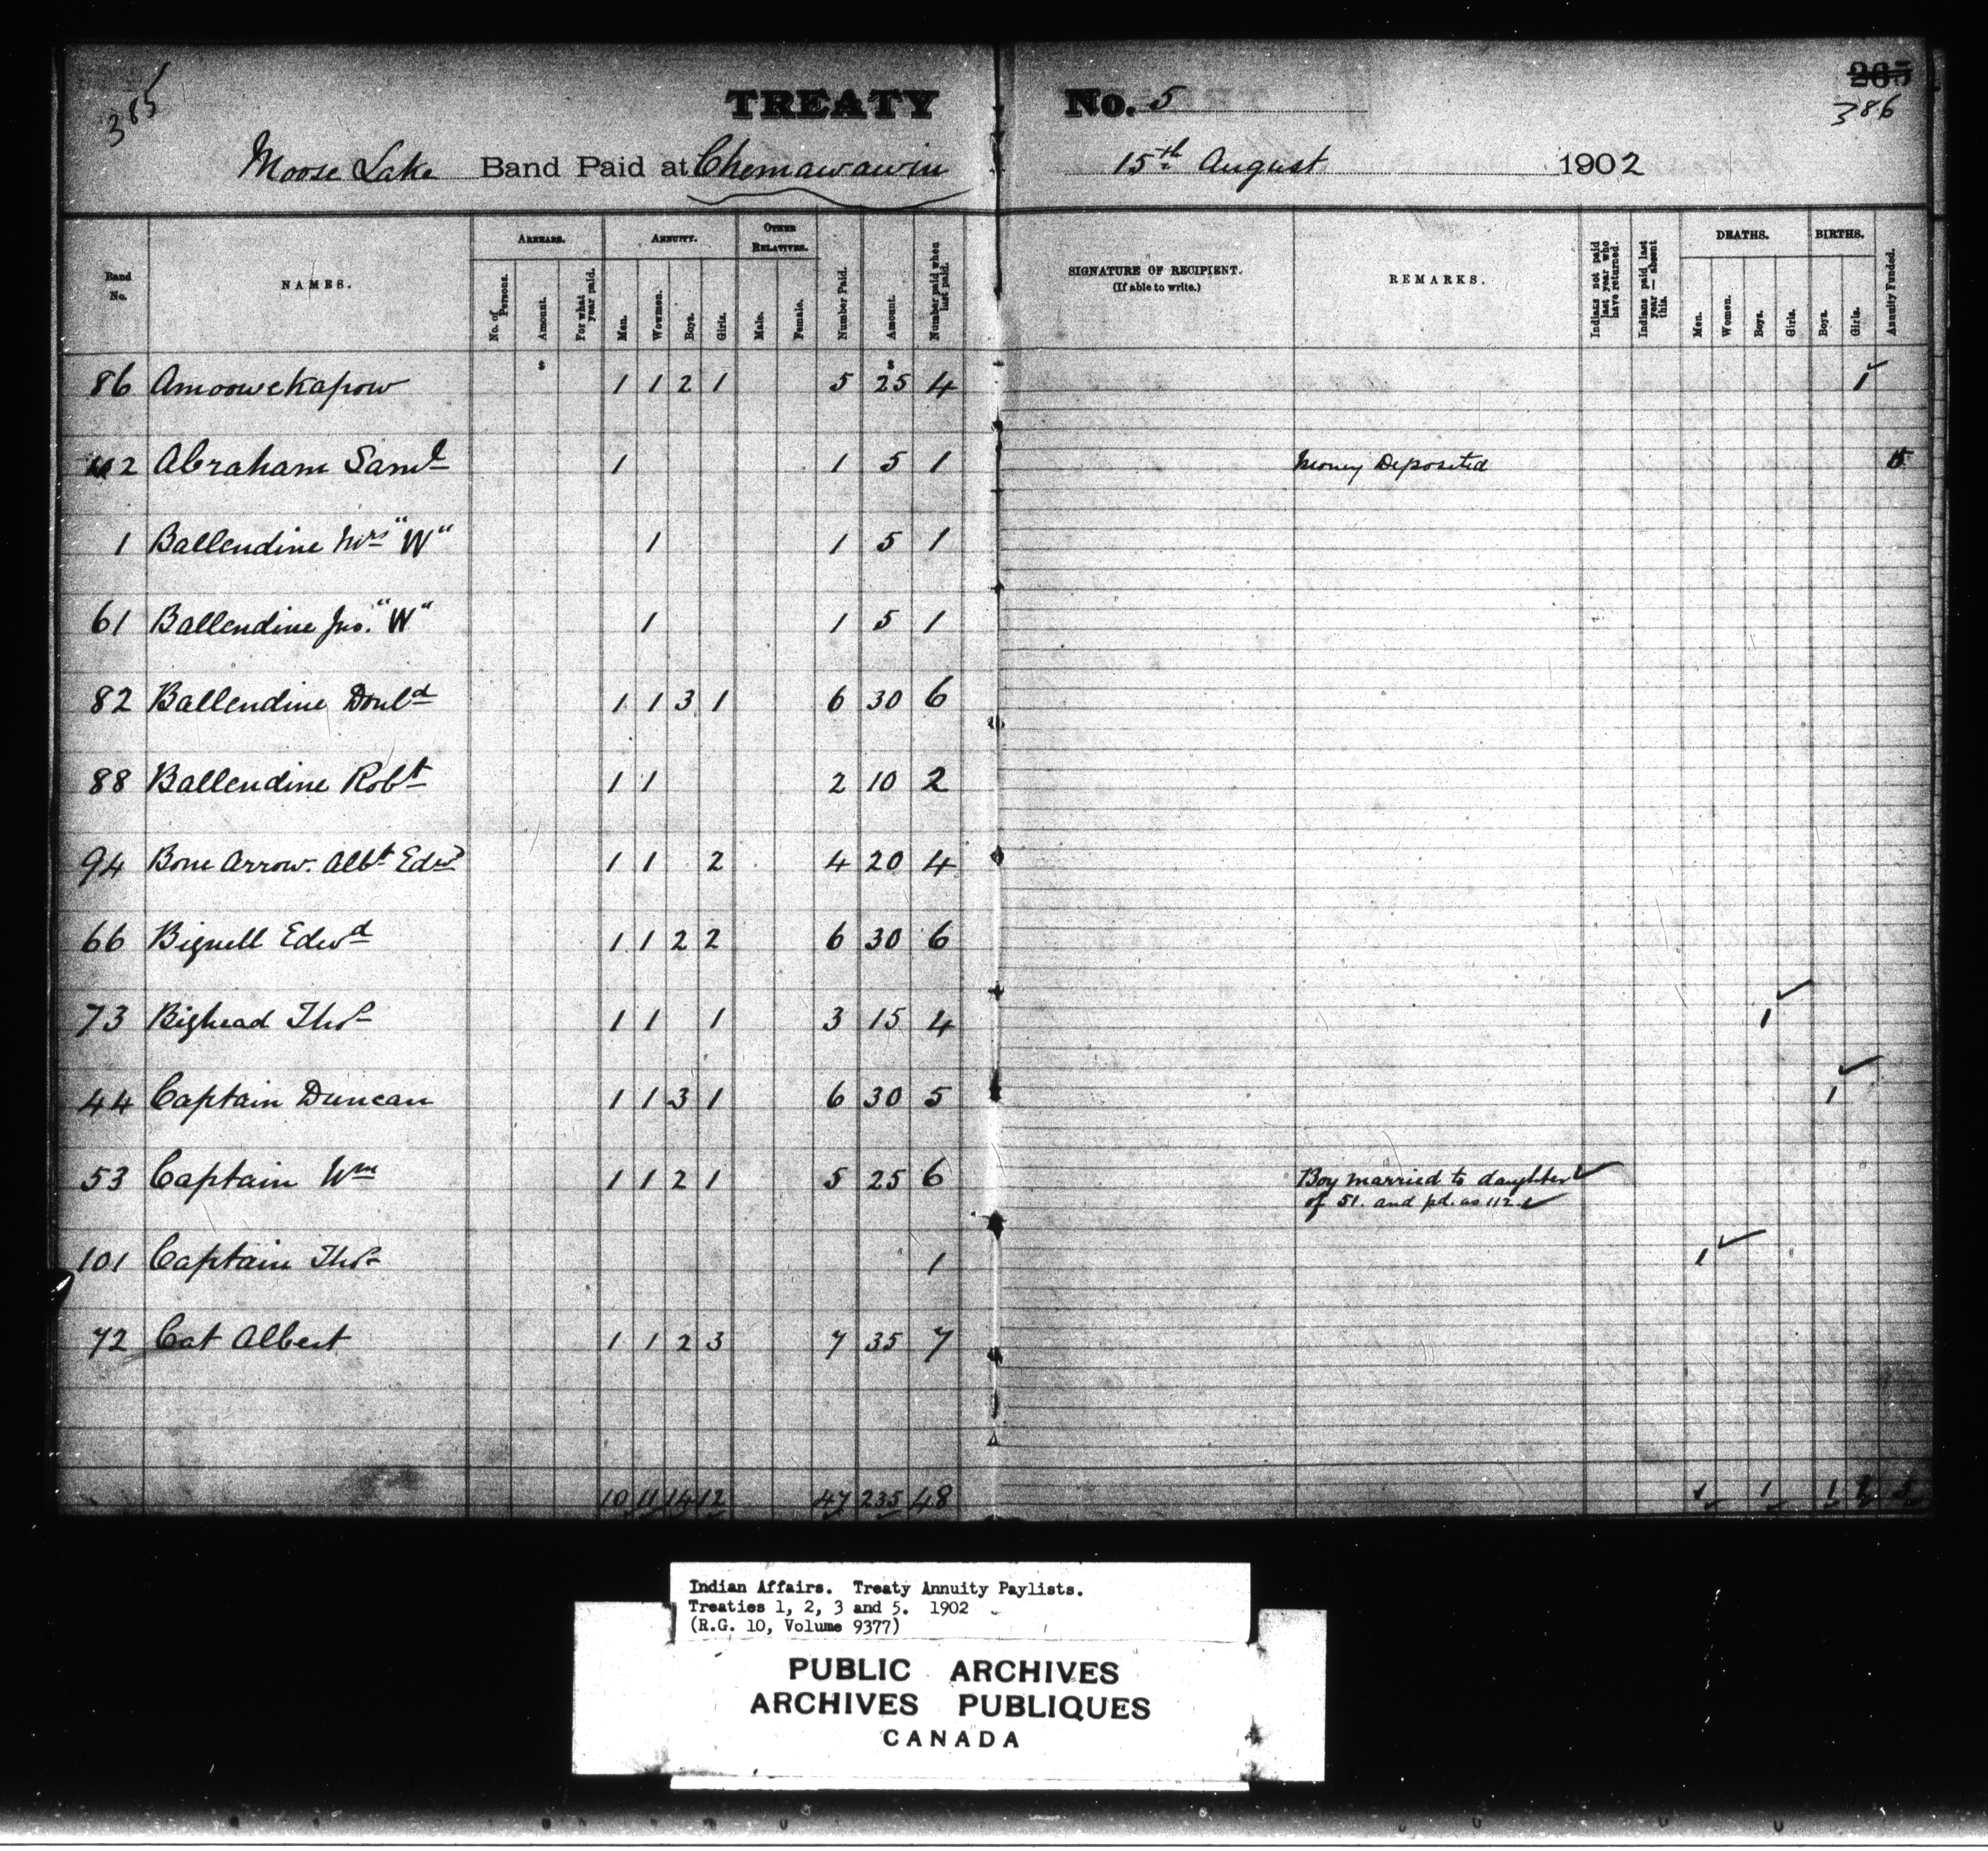 385
TREATY No. 5
265
386
Moose Lake Band Paid at Chemawawin 15th August 1902
Band No. NAMES. ARREARS. ANNUITY. OTHER RELATIVES. Number Paid. Amount. Number paid when last paid. SIGNATURE OF RECIPIENT. (If able to write.) REMARKS. Indians not paid last year who have returned. Indians paid last year — absent this. DEATHS. BIRTHS. Annuity Funded.
No. of Persons. Amount. For what year paid. Men. Wowmen. Boys. Girls. Male. Female. Men. Women. Boys. Girls. Boys. Girls.
$ $
86 Amoowekapow 1 1 2 1 5 25 4 1 ✓
2 Abraham Saml 1 1 5 1 Money Deposited
1 Ballendine Mrs "W" 1 1 5 1
61 Ballendine Jno. "W" 1 1 5 1
82 Ballendine Donld 1 1 3 1 6 30 6
88 Ballendine Robt 1 1 2 10 2
94 Bone Arrow. Albt Edwd 1 1 2 4 20 4
66 Bignell Edwd 1 1 2 2 6 30 6
73 Bighead Thos 1 1 1 3 15 4 1 ✓
44 Captain Duncan 1 1 3 1 6 30 5 1 ✓
53 Captain Wm 1 1 2 1 5 25 6 Boy married to daughter ✓
of 51. and pd. as 112 ✓
101 Captain Thos 1 1 ✓
72 Cat Albert 1 1 2 3 7 35 7
10 11 14 12 47 235 48 1 1 1
Indian Affairs. Treaty Annuity Paylists.
Treaties 1, 2, 3 and 5. 1902
(R.G. 10, Volume 9377)
PUBLIC ARCHIVES
ARCHIVES PUBLIQUES
CANADA